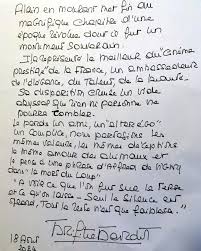 Alain en mourant met fin au
magnifique chapitre d'une
époque révolue dont il fut un
monument souverain.
Il représentait le meilleur du "cinéma
prestige" de la France, un ambassadeur
de l'élégance, du talent, de la beauté.
Sa disparition creuse un vide
abyssal que rien ne personne ne
pourra combler.
Je perds un ami, un "alter ego"
un complice, nous partagions les
mêmes valeurs, les mêmes déceptions
le même amour des animaux et
je pense à une phrase d'Alfred de Vigny
dans "la mort du Loup"
"A voir ce que l'on fut sur la Terre
et ce qu'on laisse - Seul le silence est
grand, Tout le reste n'est que faiblesse."
Brigitte Bardot
18 Août
2024